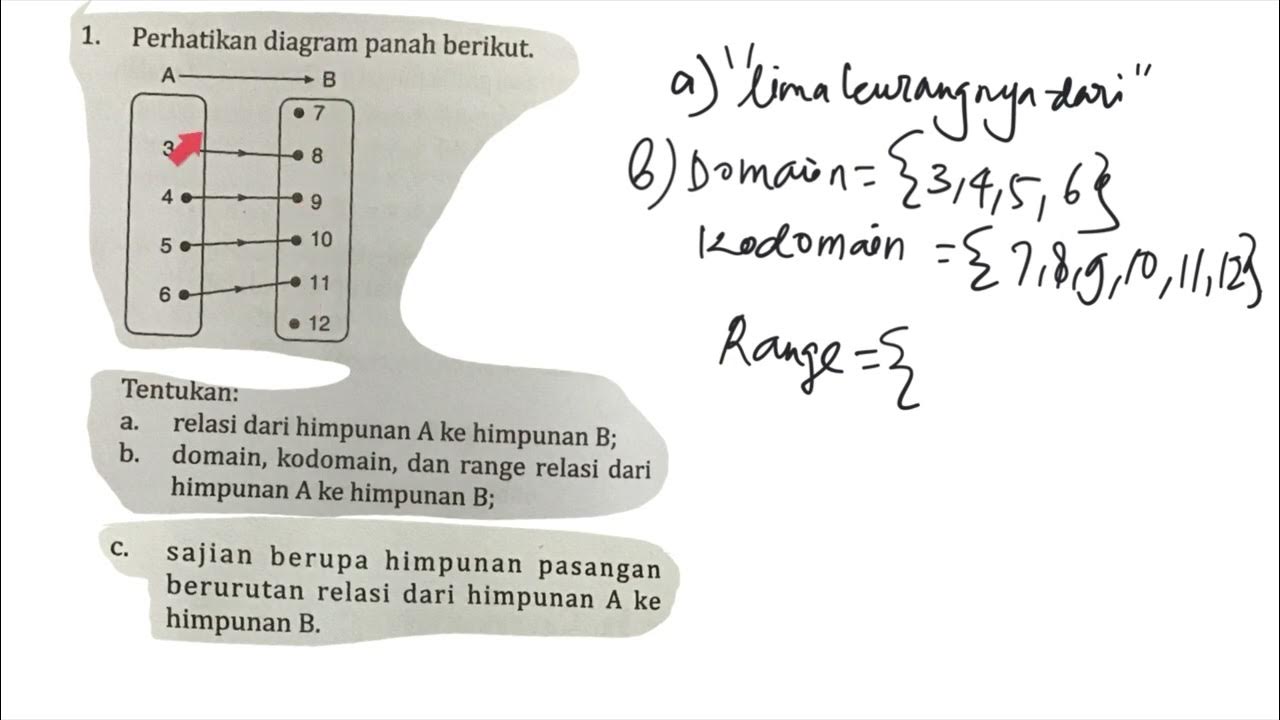 1. Perhatikan diagram panah berikut.
A B
7
3 8
4 9
5 10
6 11
12
Tentukan:
a. relasi dari himpunan A ke himpunan B;
b. domain, kodomain, dan range relasi dari
himpunan A ke himpunan B;
c. sajian berupa himpunan pasangan
berurutan relasi dari himpunan A ke
himpunan B.
a) "lima kurangnya dari"
b) Domain = {3,4,5,6}
Kodomain = {7,8,9,10,11,12}
Range = {